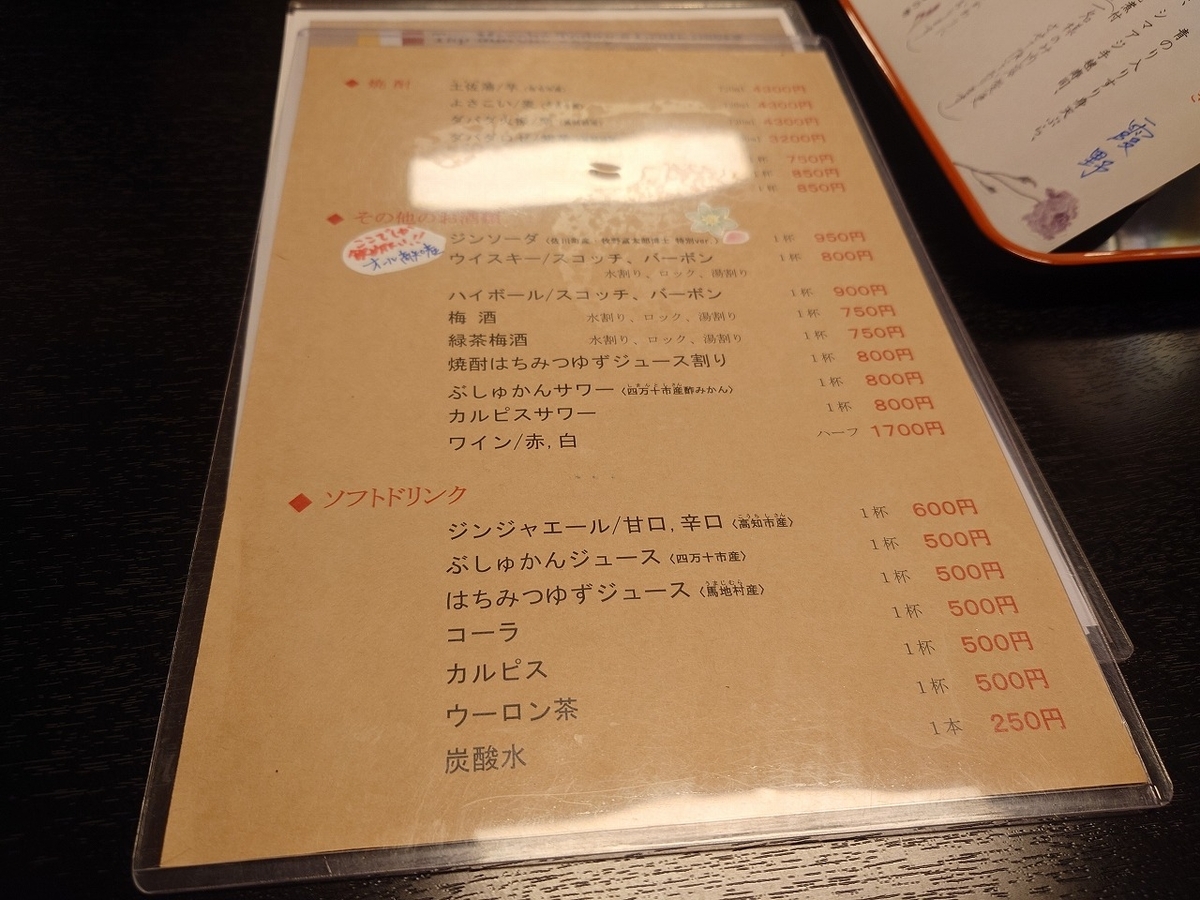 ◆ 焼酎
4300円
よさこい/栗 4300円
4300円
3200円
杯 750円
1杯 850円
1杯 850円
◆ その他のお酒類
ここでしか
飲めない!!
オール高知産
ジンソーダ〈佐川町産・牧野富太郎博士 特別ver.〉 1杯 950円
ウイスキー/スコッチ、バーボン 1杯 800円
水割り、ロック、湯割り
ハイボール/スコッチ、バーボン 1杯 900円
梅 酒 水割り、ロック、湯割り 1杯 750円
緑茶梅酒 水割り、ロック、湯割り 1杯 750円
焼酎はちみつゆずジュース割り 1杯 800円
ぶしゅかんサワー〈四万十市産酢みかん〉 1杯 800円
カルピスサワー 1杯 800円
ワイン/赤,白 ハーフ 1700円
◆ ソフトドリンク
ジンジャエール/甘口,辛口〈高知市産〉 1杯 600円
ぶしゅかんジュース〈四万十市産〉 1杯 500円
はちみつゆずジュース〈馬地村産〉 1杯 500円
コーラ 1杯 500円
カルピス 1杯 500円
ウーロン茶 1杯 500円
炭酸水 1本 250円
青のり入り
霞野